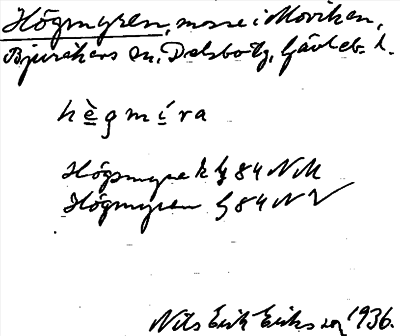 Högmyren, mosse i Moviken,
Bjuråkers sn, Delsbo tg, Gävleb. l.
hègmíra
Högmyre k ty 84 NM
Högmyren ty 84 NV
Nils Erik Erikson 1936.